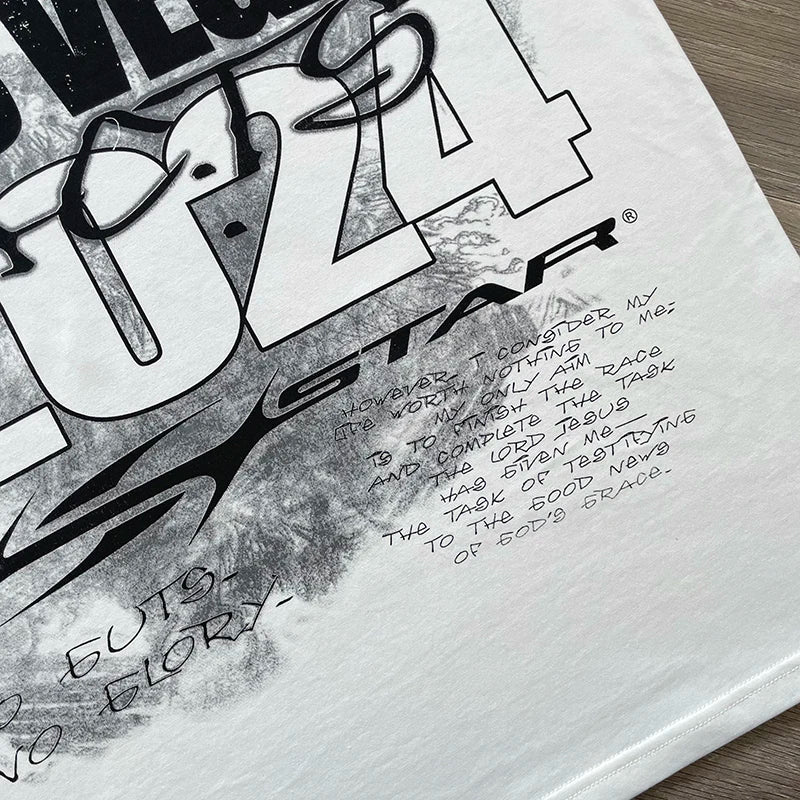 2024
STAR®
HOWEVER I CONSIDER MY
LIFE WORTH NOTHING TO ME;
MY ONLY AIM
IS TO FINISH THE RACE
AND COMPLETE THE TASK
THE LORD JESUS
HAS GIVEN ME—
THE TASK OF TESTIFYING
TO THE GOOD NEWS
OF GOD'S GRACE.
GUTS-
NO GLORY-